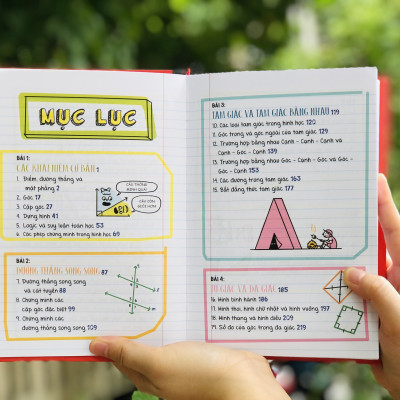 MỤC LỤC
BÀI 1:
CÁC KHÁI NIỆM CƠ BẢN 1
1. Điểm, đường thẳng và
mặt phẳng 2
2. Góc 17
3. Cặp góc 27
4. Dựng hình 41
5. Logic và suy luận toán học 53
6. Các phép chứng minh trong hình học 69
BÀI 2:
ĐƯỜNG THẲNG SONG SONG 87
7. Đường thẳng song song
và cát tuyến 88
8. Chứng minh các
cặp góc đặc biệt 99
9. Chứng minh các
đường thẳng song song 109
BÀI 3:
TAM GIÁC VÀ TAM GIÁC BẰNG NHAU 119
10. Các loại tam giác trong hình học 120
11. Góc trong và góc ngoài của tam giác 129
12. Trường hợp bằng nhau Cạnh - Cạnh - Cạnh và
Cạnh - Góc - Cạnh 139
13. Trường hợp bằng nhau Góc - Cạnh - Góc và Góc -
Góc - Cạnh 153
14. Các đường trong tam giác 163
15. Bất đẳng thức tam giác 177
BÀI 4:
TỨ GIÁC VÀ ĐA GIÁC 185
16. Hình bình hành 186
17. Hình thoi, hình chữ nhật và hình vuông 197
18. Hình thang và hình diều 209
19. Số đo của góc trong đa giác 219